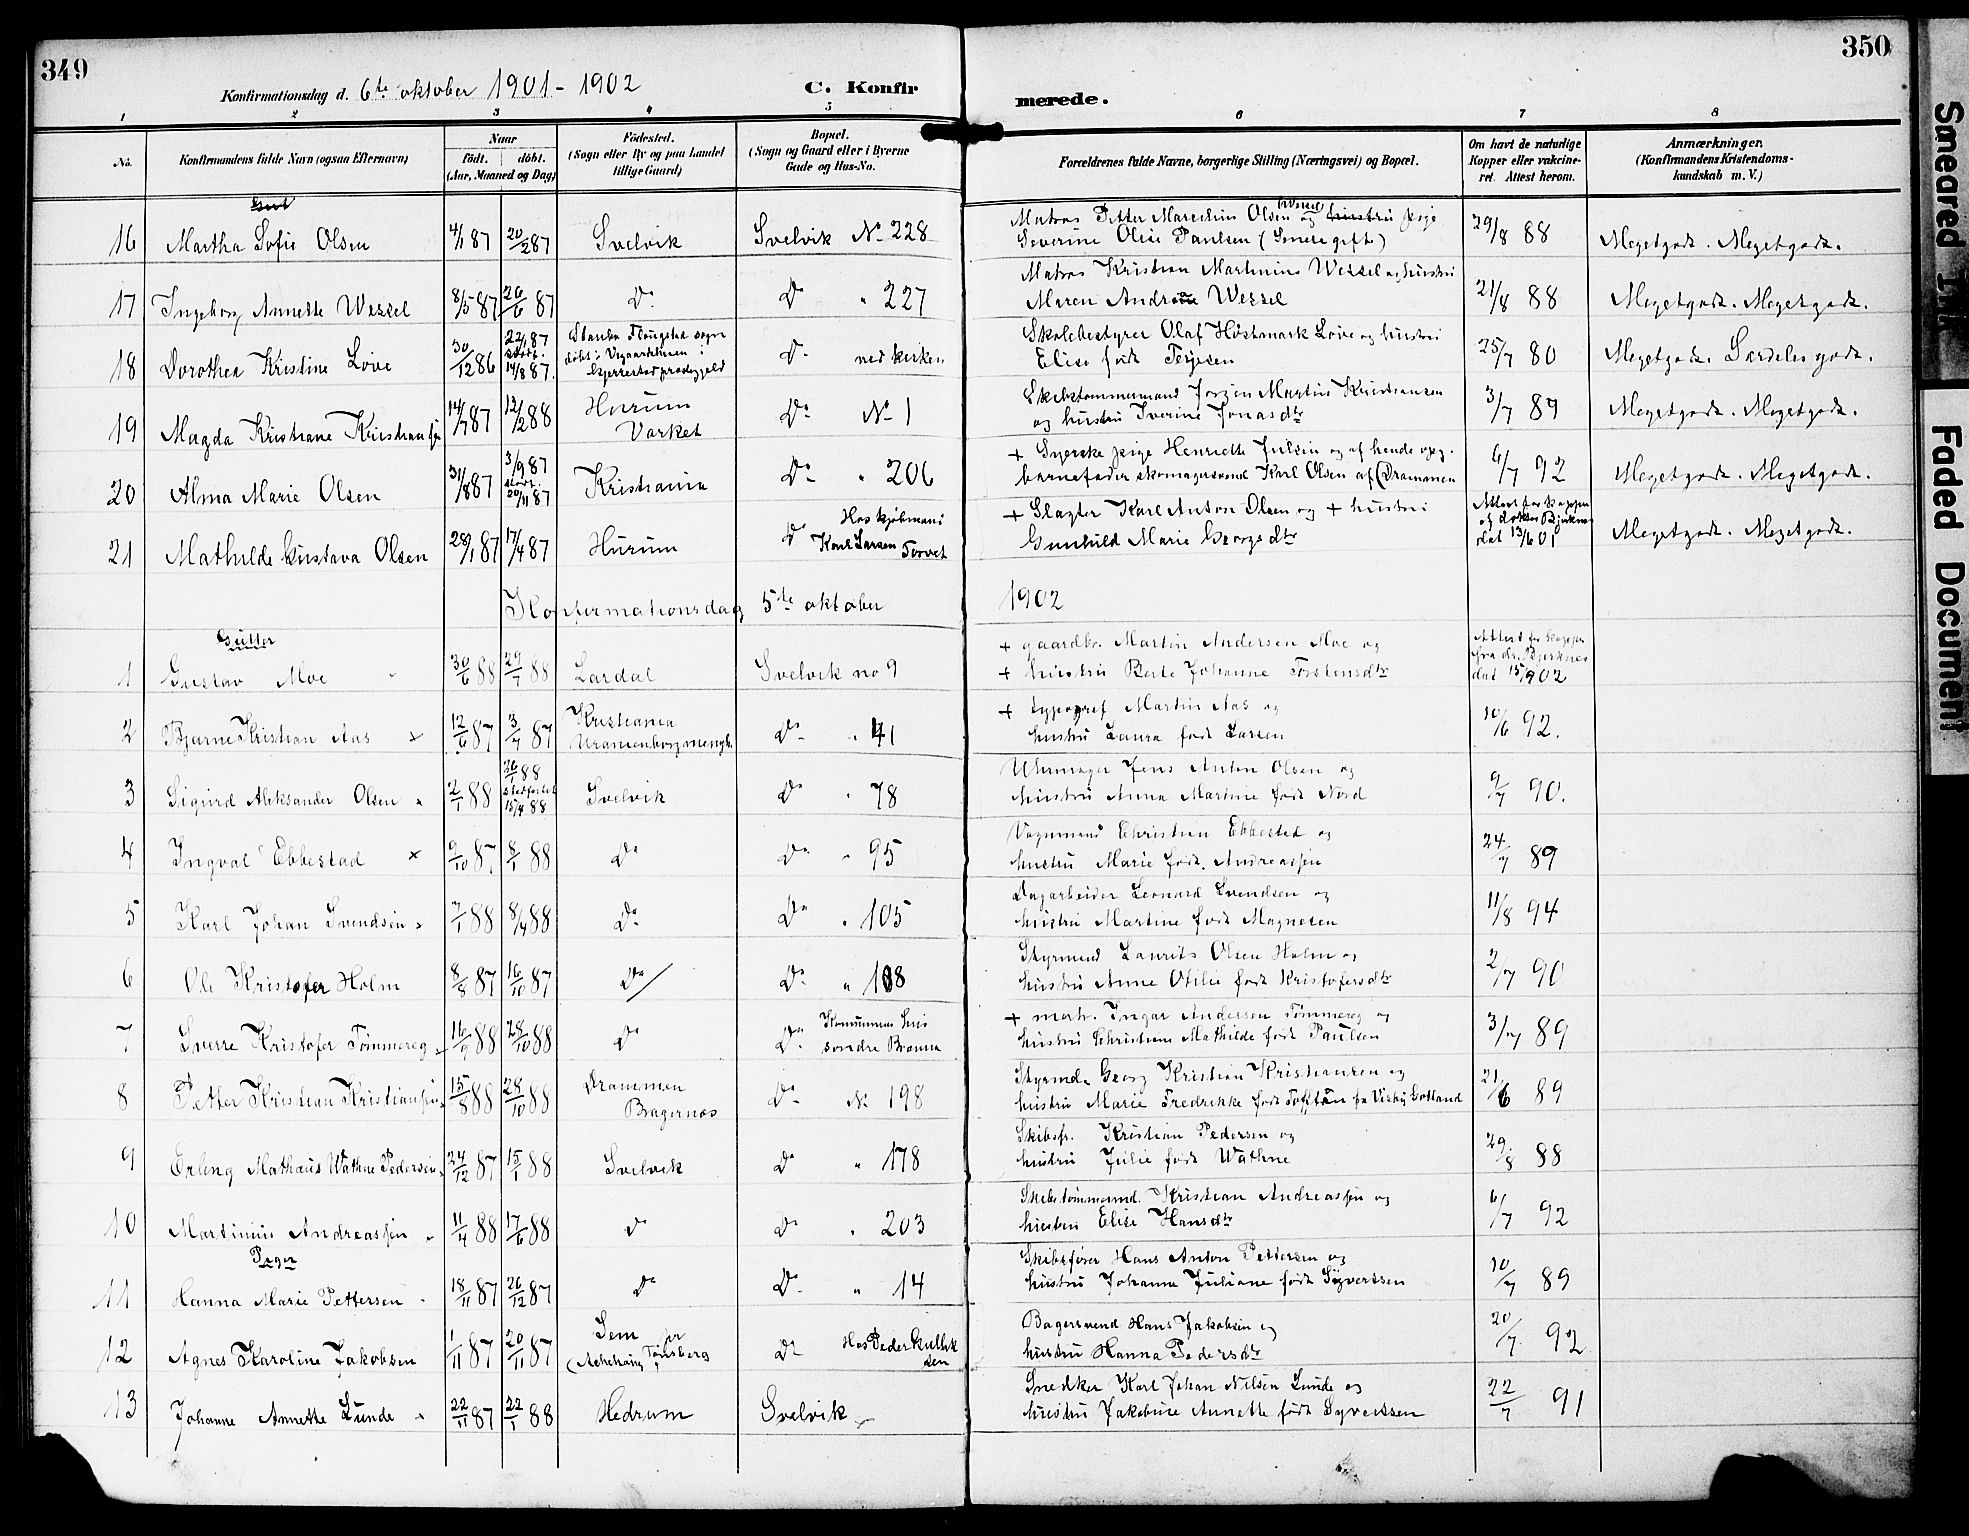 349
350
Konfirmationsdag d. 6te oktober 1901 - 1902
C. Konfir
merede.
1 2 3 4 5 6 7 8
No.
Konfirmandens fulde Navn (ogsaa Efternavn)
Naar
født. døbt.
(Aar, Maaned og Dag)
Fødested.
(Sogn eller By og paa Landet
tillige Gaard)
Bopæl.
(Sogn og Gaard eller i Byerne
Gade og Hus-No.
Forældrenes fulde Navne, borgerlige Stilling (Næringsvei) og Bopæl.
Om havt de naturlige
Kopper eller vakcine-
ret. Attest herom.
Anmærkninger.
(Konfirmandens Kristendoms-
kundskab m. V.)
16 Martha Sofie Olsen 4/1 87 20/2 87 Svelvik Svelvik No 228
Matros Petter Maredius Olsen og hustru pige
Severine Olise Paulsen (Senere gifte) 29/8 88 Megetgodt. Megetgodt.
17 Ingeborg Annette Wessel 8/5 87 26/6 87 Do Do " 227
Matros Kristian Martinius Wessel og hustru
Maren Andrea Wessel 21/8 88 Megetgodt. Megetgodt.
18 Dorothea Kristine Løve 30/12 86 22/1 87 stadf. 14/8 87.
døbt i i
Do ved kirken
Skolebestyrer Olaf Høstmark Løve og hustru
Elise født Terjesen 25/7 80 Megetgodt. Særdeles godt.
19 Magda Kristiane Kristiansen 14/7 87 12/2 88 Hurum
Varket
Do No 1
Skibstømmermand Jørgen Martin Kristiansen
og hustru Iverine Jonasdtr 3/7 89 Megetgodt. Megetgodt.
20 Alma Marie Olsen 31/8 87 3/9 87 stadf. 20/11 87 Kristiania Do " 206
+ Syerske pige Henriette Julsen og af hende opg.
barnefader skomagersvend Karl Olsen af (Drammen 6/7 92 Megetgodt. Megetgodt.
21 Mathilde Gustava Olsen 28/1 87 17/4 87 Hurum Do Hos kjøbmand
Karl Larsen Torvet
+ Slagter Karl Anton Olsen og + hustru
Gunhild Marie Georgsdtr
Attest for kopper
dat 13/6 01
Megetgodt. Megetgodt.
Konfirmationsdag 5te oktober 1902
Gutter
1 Gustav Moe 30/6 88 29/7 88 Lardal Svelvik no 9
+ gaardbr. Martin Andersen Moe og
+ hustru Berte Johanne Torstensdtr
Attest for kopper
fra dr. Bjerknes
dat 15/9 02
2 Bjarne Kristian Aas x 12/6 87 3/7 87 Kristiania
Uranienborg menigh. Do " 41
+ typograf Martin Aas og
hustru Laura født Larsen 10/6 92.
3 Sigurd Aleksander Olsen 2/1 88 26/1 88 stadfæstet 15/4 88 Svelvik Do " 78
Uhrmager Jens Anton Olsen og
hustru Anna Martine født Nord 9/7 90.
4 Ingval Ebbestad x 9/10 87 8/1 88 Do Do " 95
Vognmand Christian Ebbestad og
hustru Marie født Andreassen 24/7 89
5 Karl Johan Svendsen 7/1 88 8/4 88 Do Do " 105
Dagarbeider Leonard Svendsen og
hustru Martine født Magnesen 11/8 94
6 Ole Kristofer Holm 8/8 87 16/10 87 Do Do " 108
Styrmand Laurits Olsen Holm og
hustru Anne Otilie født Kristofersdtr 2/7 90
7 Sverre Kristofer Tømmereg 16/9 88 28/10 88 Do Do Kommunens hus
søndre Brænna
+ matr. Ingar Andersen Tømmereg og
hustru Christiane Mathilde født Paulsen 3/7 89
8 Petter Kristian Kristiansen 15/8 88 28/10 88 Drammen
Bagernæs
Do No 198
Styrmd. Georg Kristian Kristiansen og
hustru Marie Fredrikke født Tofftén fra Visby Gotland 21/6 89
9 Erling Mathæus Wathne Pedersen 24/12 87 15/1 88 Svelvik Do " 178
Skibsfr. Kristian Pedersen og
hustru Julie født Wathne 29/8 88
10 Martinius Andreassen 11/4 88 17/6 88 Do Do " 203
Skibstømmermd. Kristian Andreassen og
hustru Elise Hansdtr 6/7 92
Piger
11 Hanna Marie Pettersen 18/11 87 26/12 87 Do Do " 14
Skibsfører Hans Anton Pettersen og
hustru Johanne Juliane født Syvertsen 10/7 89
12 Agnes Karoline Jakobsen 1/11 87 20/11 87 Sem
Tønsberg
Do Hos Peder
Bagersvend Hans Jakobsen og
hustru Hanna Pedersdtr 20/7 92
13 Johanne Annette Lunde 22/11 87 22/1 88 Hedrum Svelvik
Snedker Karl Johan Nilsen Lunde og
hustru Jakobine Annette født Syvertsen 22/7 91
Smeared Ink
Faded Document